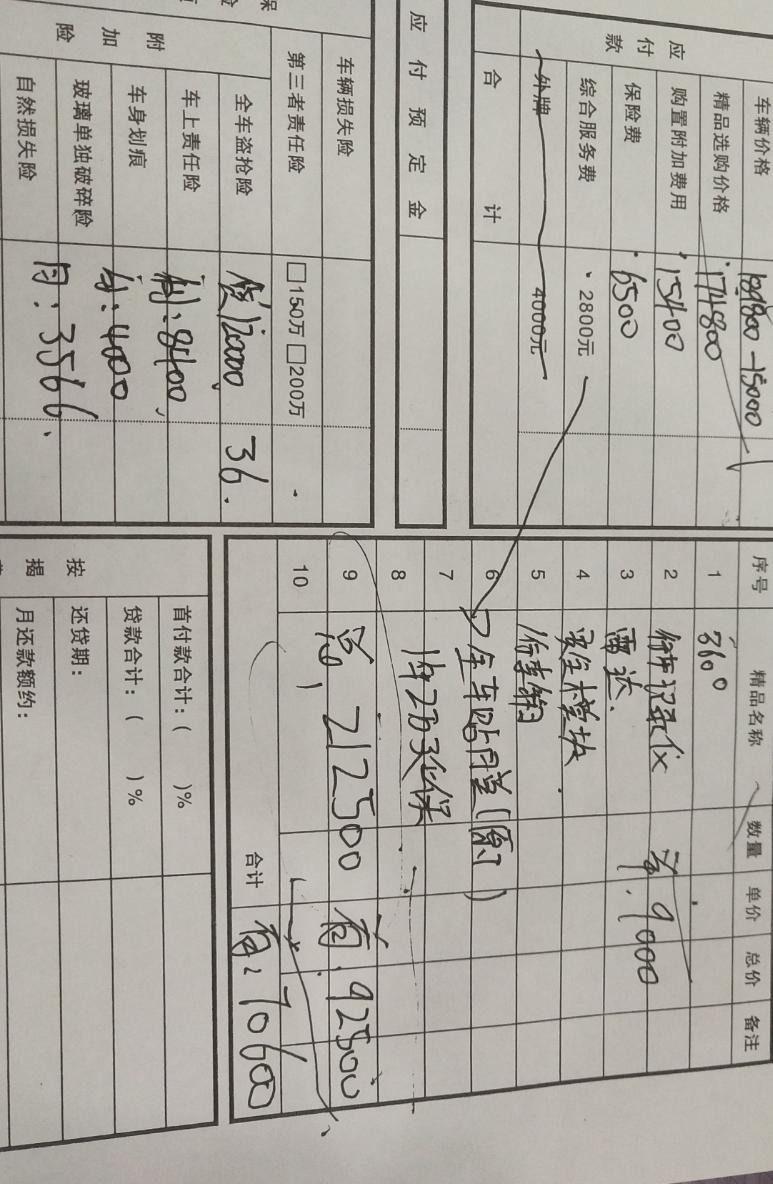 应付款
车辆价格 189800-15000
精品选购价格 174800
购置附加费用 15400
保险费 6500
综合服务费 2800元
外牌 4000元
合计
应付预定金
车辆损失险
第三者责任险 □150万 □200万
附加险
全车盗抢险 贷120000 36.
车上责任险 利:8400,
车身划痕 4000
玻璃单独破碎险
自然损失险 月:3566.
序号 精品名称 数量 单价 总价 备注
1 360°
2 行车记录仪
3 雷达. 9000
4 安全模块
5
6 全车贴门
7 1年2万
8
9 212500 首.92500
10
合计 首:70600
按揭
首付款合计:( )%
贷款合计:( )%
还贷期:
月还款额约: